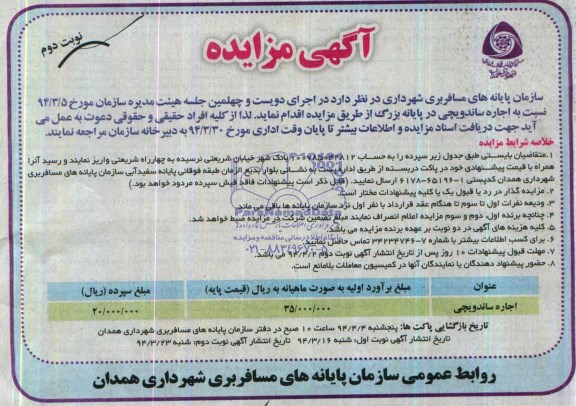 نوبت دوم
آگهی مزایده
سازمان پایانه های مسافربری شهرداری در نظر دارد در اجرای دویست و چهلمین جلسه هیئت مدیره سازمان مورخ ۹۴/۳/۵
نسبت به اجاره ساندویچی در پایانه بزرگ از طریق مزایده اقدام نماید. لذا از کلیه افراد حقیقی و حقوقی دعوت به عمل می
آید جهت دریافت اسناد مزایده و اطلاعات بیشتر تا پایان وقت اداری مورخ ۹۴/۳/۳۰ به دبیرخانه سازمان مراجعه نمایند.
خلاصه شرایط مزایده
۱.متقاضیان بایستی طبق جدول زیر سپرده را به حساب بانک شهر خیابان شریعتی نرسیده به چهارراه شریعتی واریز نمایند و رسید آنرا
همراه با قیمت پیشنهادی خود در پاکت دربسته از طریق اداره پست به نشانی بلوار بدیع الزمان طبقه فوقانی پایانه سفیدآبی سازمان پایانه های مسافربری
شهرداری همدان کدپستی ۱-۶۵۱۹۶-۶۱۷۸ ارسال نمایید. (قابل ذکر است پیشنهادات فاقد فیش سپرده مردود خواهد بود.)
۲. مزایده گذار در رد یا قبول یک یا کلیه پیشنهادات مختار است.
۳. ودیعه نفرات اول تا سوم تا هنگام عقد قرارداد با نفر اول نزد سازمان پایانه ها باقی می ماند.
۴. چنانچه برنده اول، دوم و سوم مزایده اعلام انصراف نمایند مبلغ تضمین شرکت در مزایده ضبط خواهد شد.
۵. کلیه هزینه های آگهی در دو نوبت بر عهده برنده مزایده می باشد.
۶. برای کسب اطلاعات بیشتر با شماره ۷-۳۴۲۳۴۷۴۶ تماس حاصل نمایید.
۷. مهلت قبول پیشنهادات ۱۰ روز پس از تاریخ انتشار آگهی نوبت دوم ۹۴/۴/۲ می باشد.
۸. حضور پیشنهاد دهندگان یا نمایندگان آنها در کمیسیون معاملات بلامانع است.
عنوان مبلغ برآورد اولیه به صورت ماهیانه به ریال (قیمت پایه) مبلغ سپرده (ریال)
اجاره ساندویچی ۳۵/۰۰۰/۰۰۰ ۲۰/۰۰۰/۰۰۰
تاریخ بازگشایی پاکت ها: پنجشنبه ۹۴/۴/۴ ساعت ۱۰ صبح در دفتر سازمان پایانه های مسافربری شهرداری همدان
تاریخ انتشار آگهی نوبت اول: شنبه ۹۴/۳/۱۶ تاریخ انتشار آگهی نوبت دوم: شنبه ۹۴/۳/۲۳
روابط عمومی سازمان پایانه های مسافربری شهرداری همدان
ParsNamadData
۰۲۱-۸۸۳۴۹۶۷۰-۵